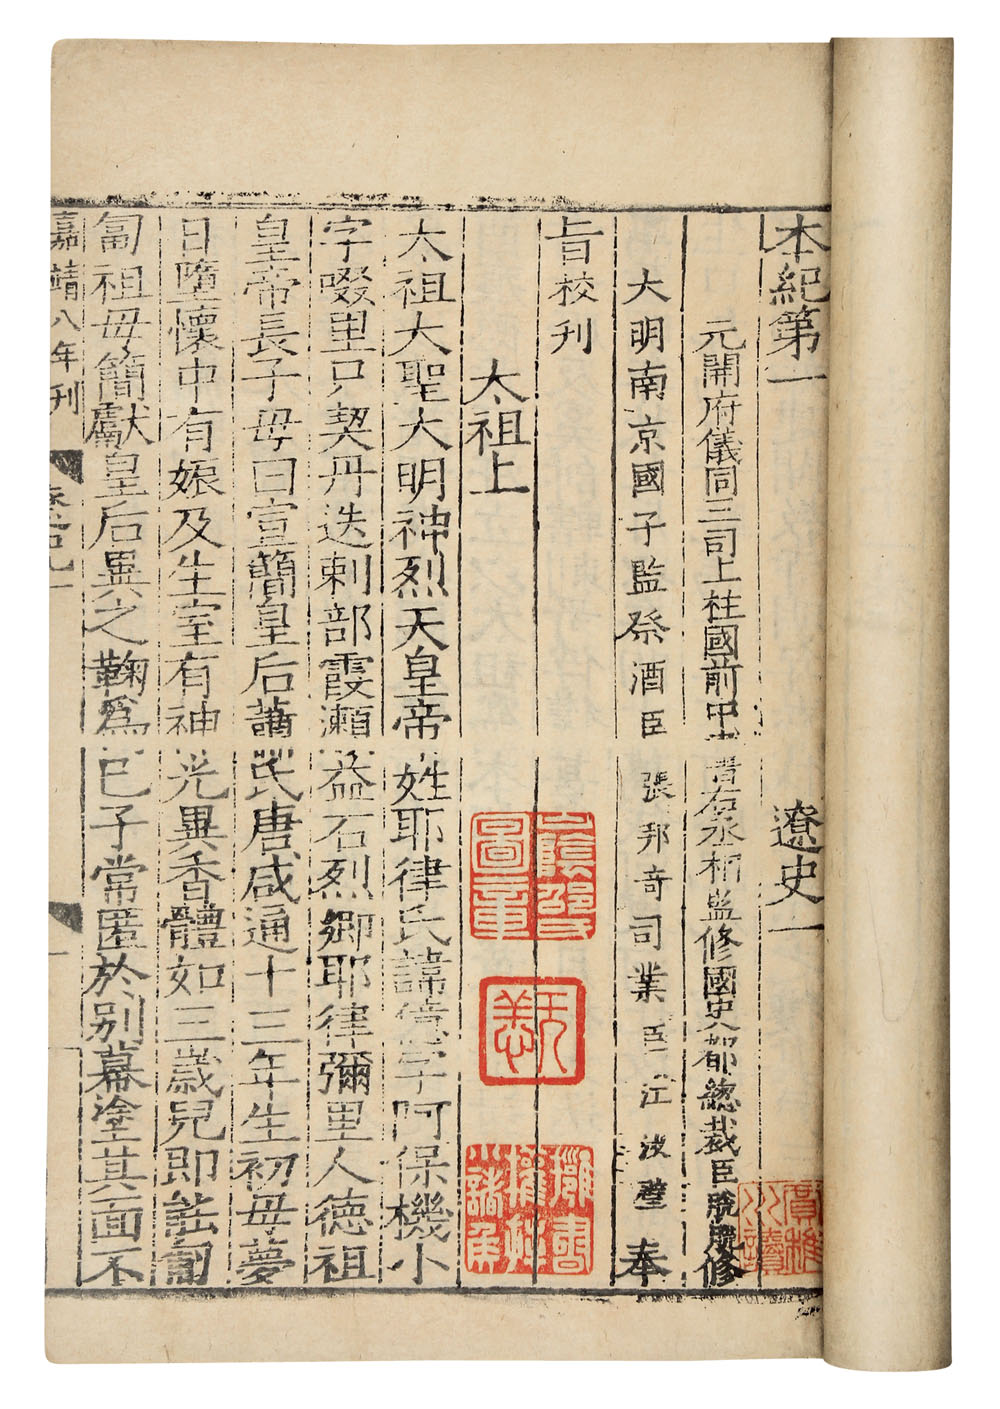 本紀第一 遼史一
元開府儀同三司上柱國前中書右丞相監修國史都總裁臣脫脫修
大明南京國子監祭酒臣張邦奇司業臣江汝璧奉
旨校刊
太祖上
太祖大聖大明神烈天皇帝姓耶律氏諱億字阿保機小
字啜里只契丹迭剌部霞瀨益石烈鄉耶律彌里人德祖
皇帝長子母曰宣簡皇后蕭氏唐咸通十三年生初母夢
日墮懷中有娠及生室有神光異香體如三歲兒即能匍
匐祖母簡獻皇后異之鞠爲己子常匿於別幕塗其面不
嘉靖八年刊